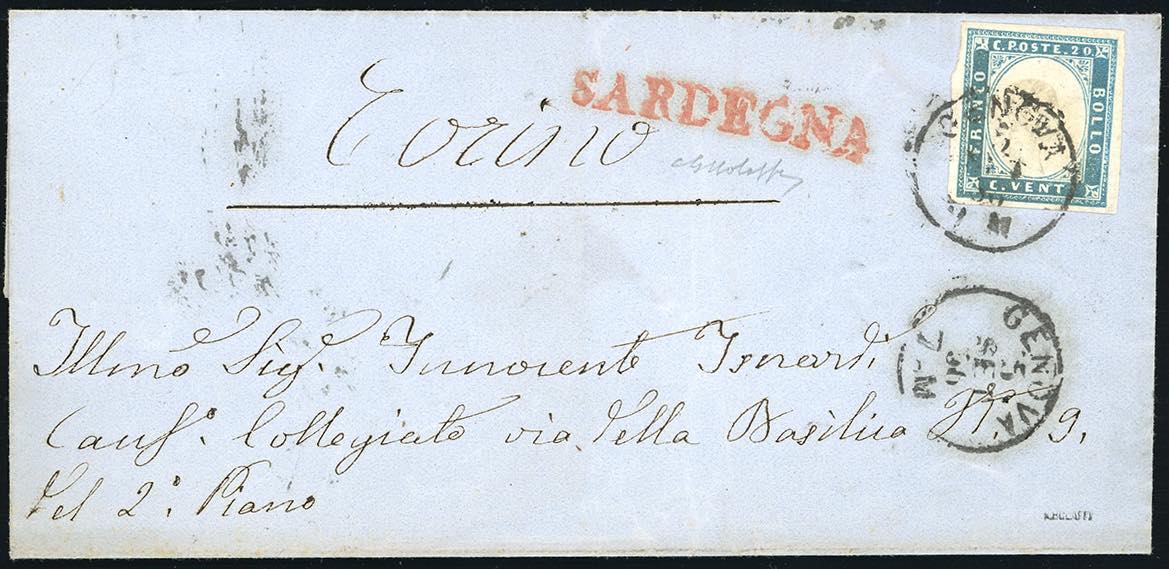 C. POSTE. 20
FRANCO
BOLLO
C. VENT
SARDEGNA
Torino
GENOVA
GENOVA
5
7 M
Illmo Sig. Innocente Isnardi
Caus°. Collegiato via della Basilica N°. 9.
del 2°. Piano